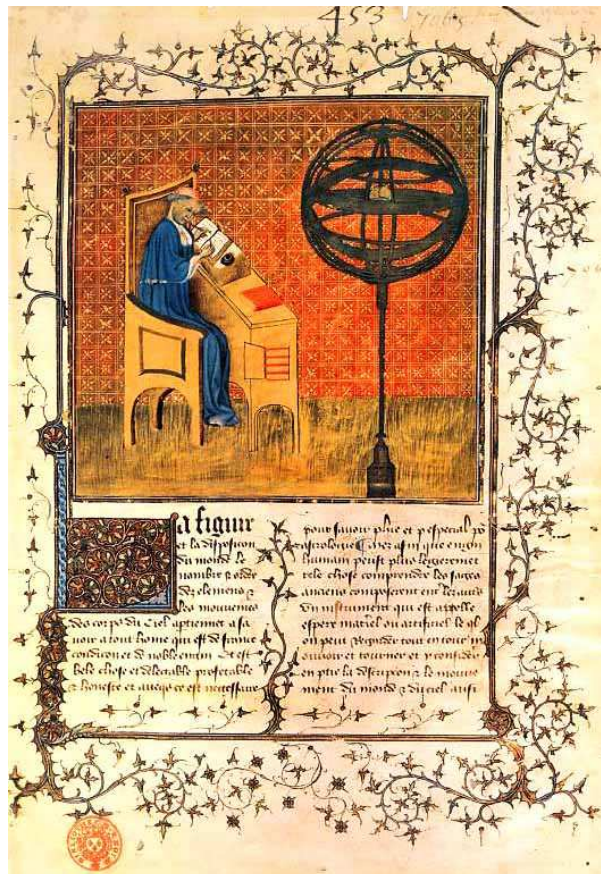 453
7065
La figure
et la disposicion
du monde le
nombre & ordre
des elemens &
les mouvemens
des corps du ciel aptienent a sa
voir a tout home qui est de france
condicion et de noble engin Et est
bele chose et delectable profetable
& honeste et avecques ce est necessaire
pour savoir plus et p especial po
astrologie Car afin que engin
humain peust plus legierement
tele chose comprendre les sages
anciens composerent
un instrument qui est appelle
espere materiel ou artificiel le ql
on peut regarder tout entour
mouvoir et tourner et p considerer
en ptie la discripcion & le mouve
ment du monde & du ciel aussi